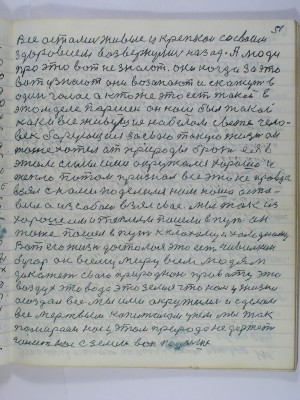 51
Все остались живые и крепкои со своим
здоровием возвернулись назад. А люди
про это вот не знают. они когда за это
вот узнают они возопают и скажут в
один голос а кто же это есть такой в
этом деле Паршек он нам был такой
как и все живущие на белом свете чело-
век борующий за свою такую жизнь он
тоже хотел от природы брать ея в
этом были ими окружался хорошо и
тепло потом признал все это не правда
взял с нами поделился нам нами оста-
вил а из собою взял свое. Мы так из
хорошим и теплым пошли в путь он
тоже пошел в путь к плохому и холодному
Вот его жизнь достойная это есть, Чивилкин
бугор он всему миру всем людям
докажет своею природною правоту это
воздух это вода это земля что нам у жизни
создал все мы ими окружились и сделали
все мертвым капиталом у нем мы так
помираем нас у этом природа не держит
гонит нас с земли вон